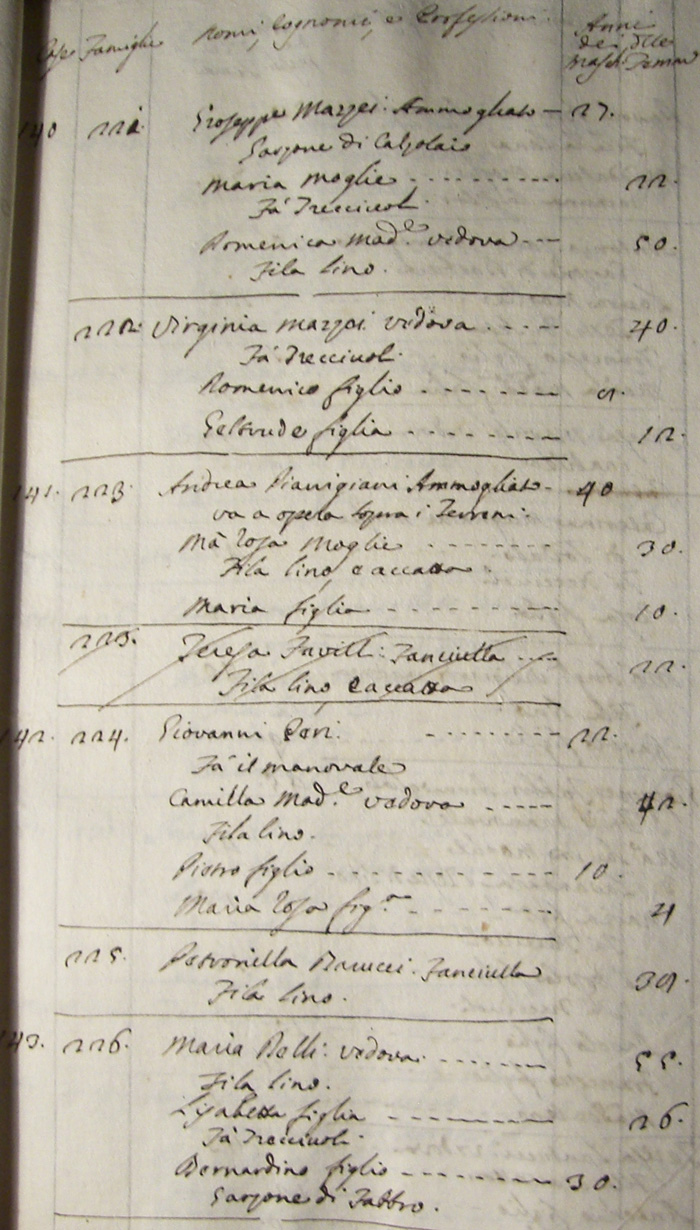 Case Famiglie Nomi, Cognomi, e Professioni. Anni
dei delle
Maschi Femm
140 221. Giuseppe Mazzei. Ammogliato — 27.
Garzone di Calzolaio
Maria Moglie ---------- 22.
Fà Trecciuoli
Domenica Mad.e vedova --- 50.
Fila lino.
222. Virginia Mazzei vedova ----- 40.
Fà Trecciuoli.
Domenico figlio -------- 9.
Geltrude figlia -------- 12.
141. 223. Andrea Pianigiani Ammogliato. 40
va a opera sopra i Terreni.
Ma Rosa Moglie --------- 30.
Fila lino, e accatta.
Maria figlia --------- 10.
223. Teresa Favilli: Fanciulla --- 22.
Fila lino e accatta
142. 224. Giovanni --------- 22.
Fà il manovale
Camilla Mad.e vedova ----- 42.
Fila lino.
Pietro figlio ----------- 10.
Maria Rosa fig.a --------- 4
225. Petronilla Fanciulla 39.
Fila lino.
143. 226. Maria vedova. ------ 55.
Fila lino.
Lisabetta figlia -------- 26.
Fà Trecciuoli.
Bernardino figlio -------- 30.
Garzone di Fabbro.